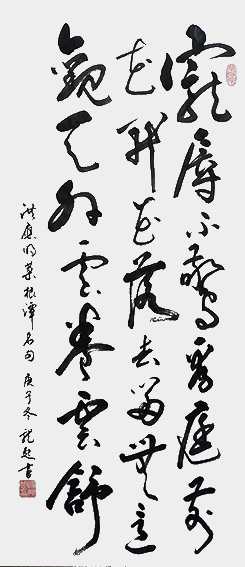 宠辱不惊看庭前
花开花落去留无意
观天外云卷云舒
洪应明菜根谭名句 庚子冬 龙赵书